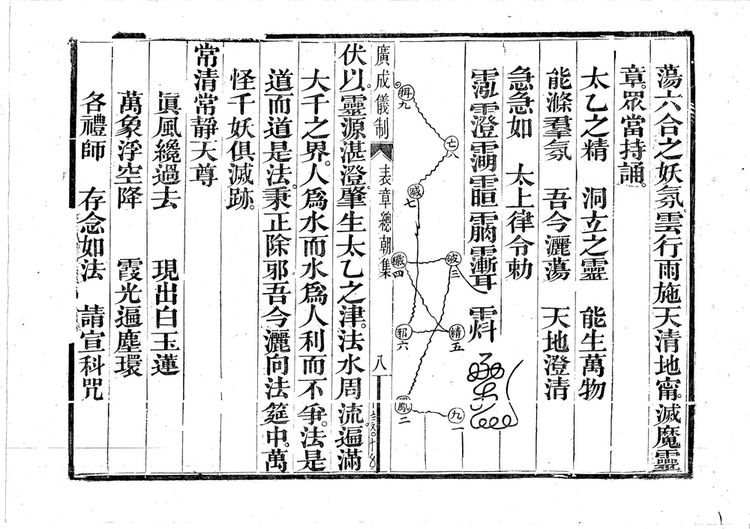 蕩六合之妖氛雲行雨施天清地甯滅魔靈
章眾當持誦
太乙之精　洞立之靈　能生萬物
能滌羣氛　吾今灑蕩　天地澄清
急急如　太上律令勅
廣成儀制　表章總朝集　八
伏以靈源湛澄肇生太乙之津法水周流遍滿
大千之界人爲水而水爲人利而不爭法是
道而道是法秉正除邪吾今灑向法筵中萬
怪千妖俱滅跡
常清常靜天尊
眞風纔過去　現出白玉蓮
萬象浮空降　霞光遍塵環
各禮師　存念如法　請宣科咒